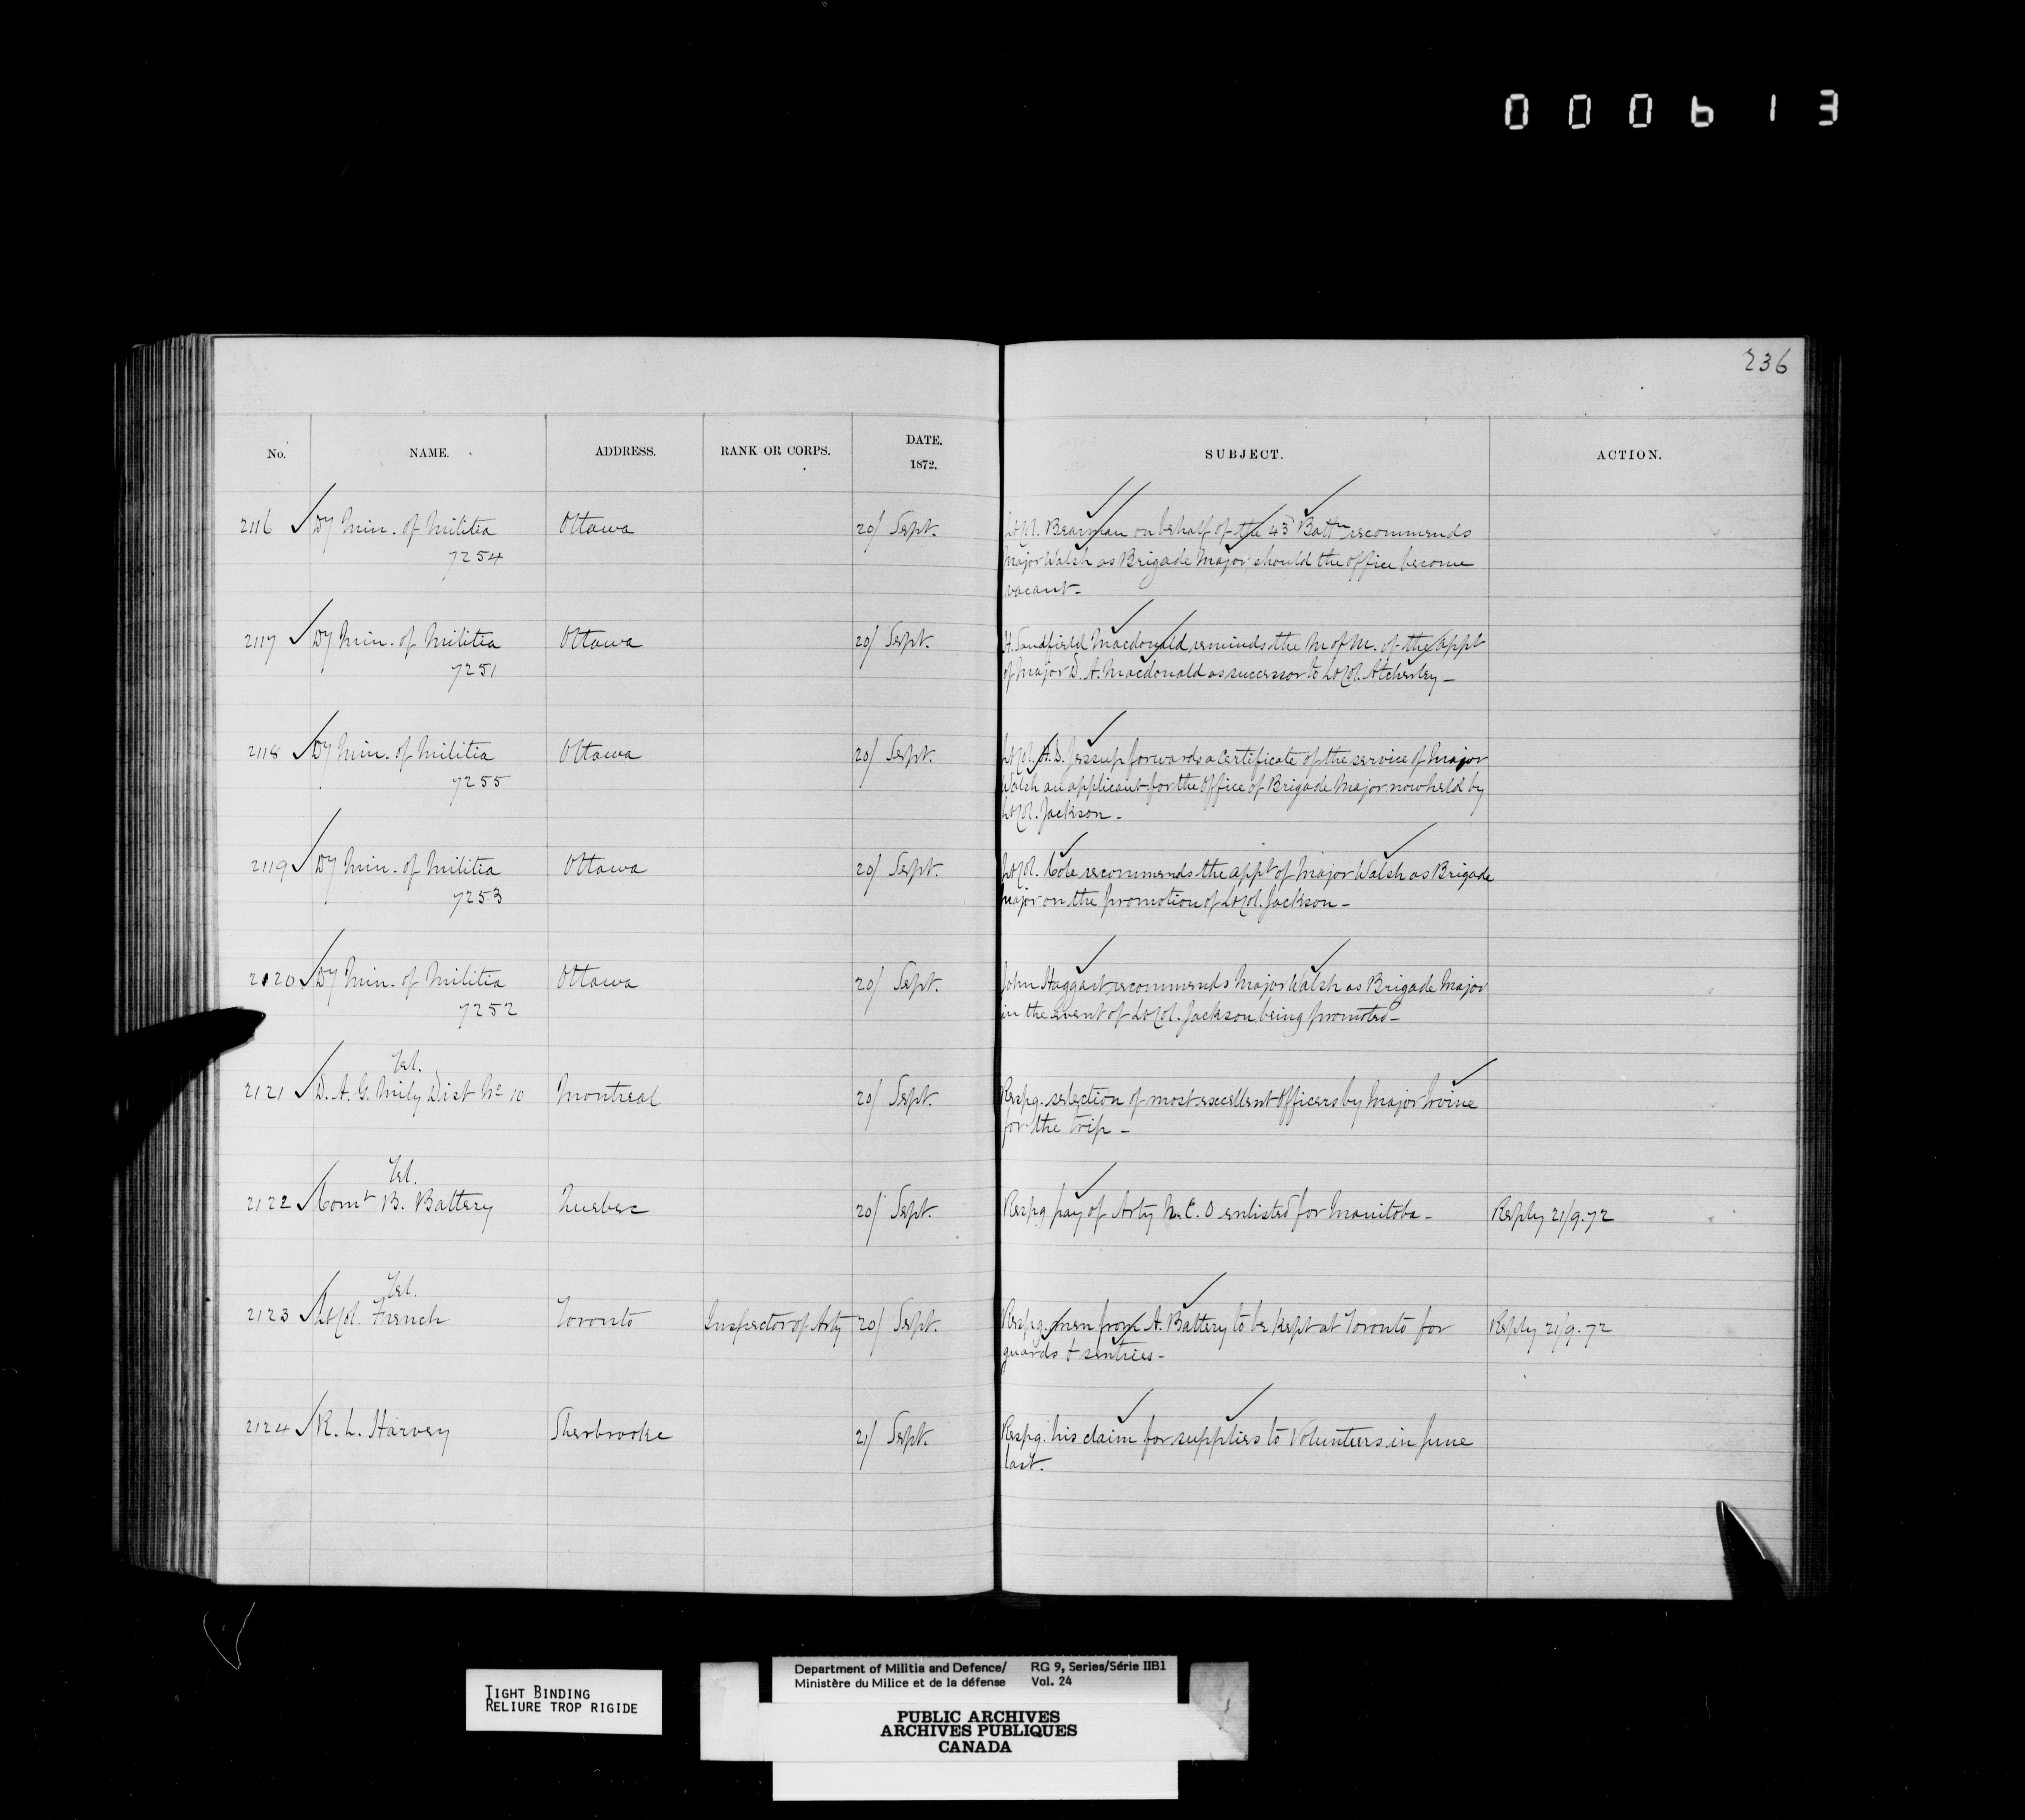 000613
236
No. NAME. ADDRESS. RANK OR CORPS. DATE. 1872. SUBJECT. ACTION.
2116 Dy Min. of Militia Ottawa 20/ Sept. Lt Col. Bearman on behalf of the 43 Battn recommends
7254 Major Walsh as Brigade Major, should the office become
vacant-
2117 Dy Min. of Militia Ottawa 20/ Sept. Sandfield Macdonald reminds the M of M. of the appt
7251 of Major D. A. Macdonald as successor to Lt Col. Atcherley-
2118 Dy Min. of Militia Ottawa 20/ Sept. Lt Col. H. D. Jessup forwards a certificate of the service of Major
7255 Walsh an applicant for the Office of Brigade Major now held by
Lt Col. Jackson-
2119 Dy Min. of Militia Ottawa 20/ Sept. Lt Col. Cole recommends the appt of Major Walsh as Brigade
7253 Major on the promotion of Lt Col. Jackson-
2120 Dy Min. of Militia Ottawa 20/ Sept. John Haggart recommends Major Walsh as Brigade Major
7252 in the event of Lt Col. Jackson being promoted-
Tel.
2121 D. A. G. Mily Dist No 10 Montreal 20/ Sept. Respg. selection of most excellent Officers by Major Irvine
for the trip-
Tel.
2122 Comt B. Battery Quebec 20/ Sept. Respg pay of Arty N. C. O enlisted for Manitoba- Reply 21/9.72
Tel.
2123 Lt Col. French Toronto Inspector of Arty 20/ Sept. Respg. men from A. Battery to be kept at Toronto for Reply 21/9.72
guards & sentries-
2124 R. L. Harvey Sherbrooke 21/ Sept. Respg. his claim for supplies to Volunteers in June
last.
TIGHT BINDING
RELIURE TROP RIGIDE
Department of Militia and Defence/ RG 9, Series/Série IIB1
Ministère du Milice et de la défense Vol. 24
PUBLIC ARCHIVES
ARCHIVES PUBLIQUES
CANADA